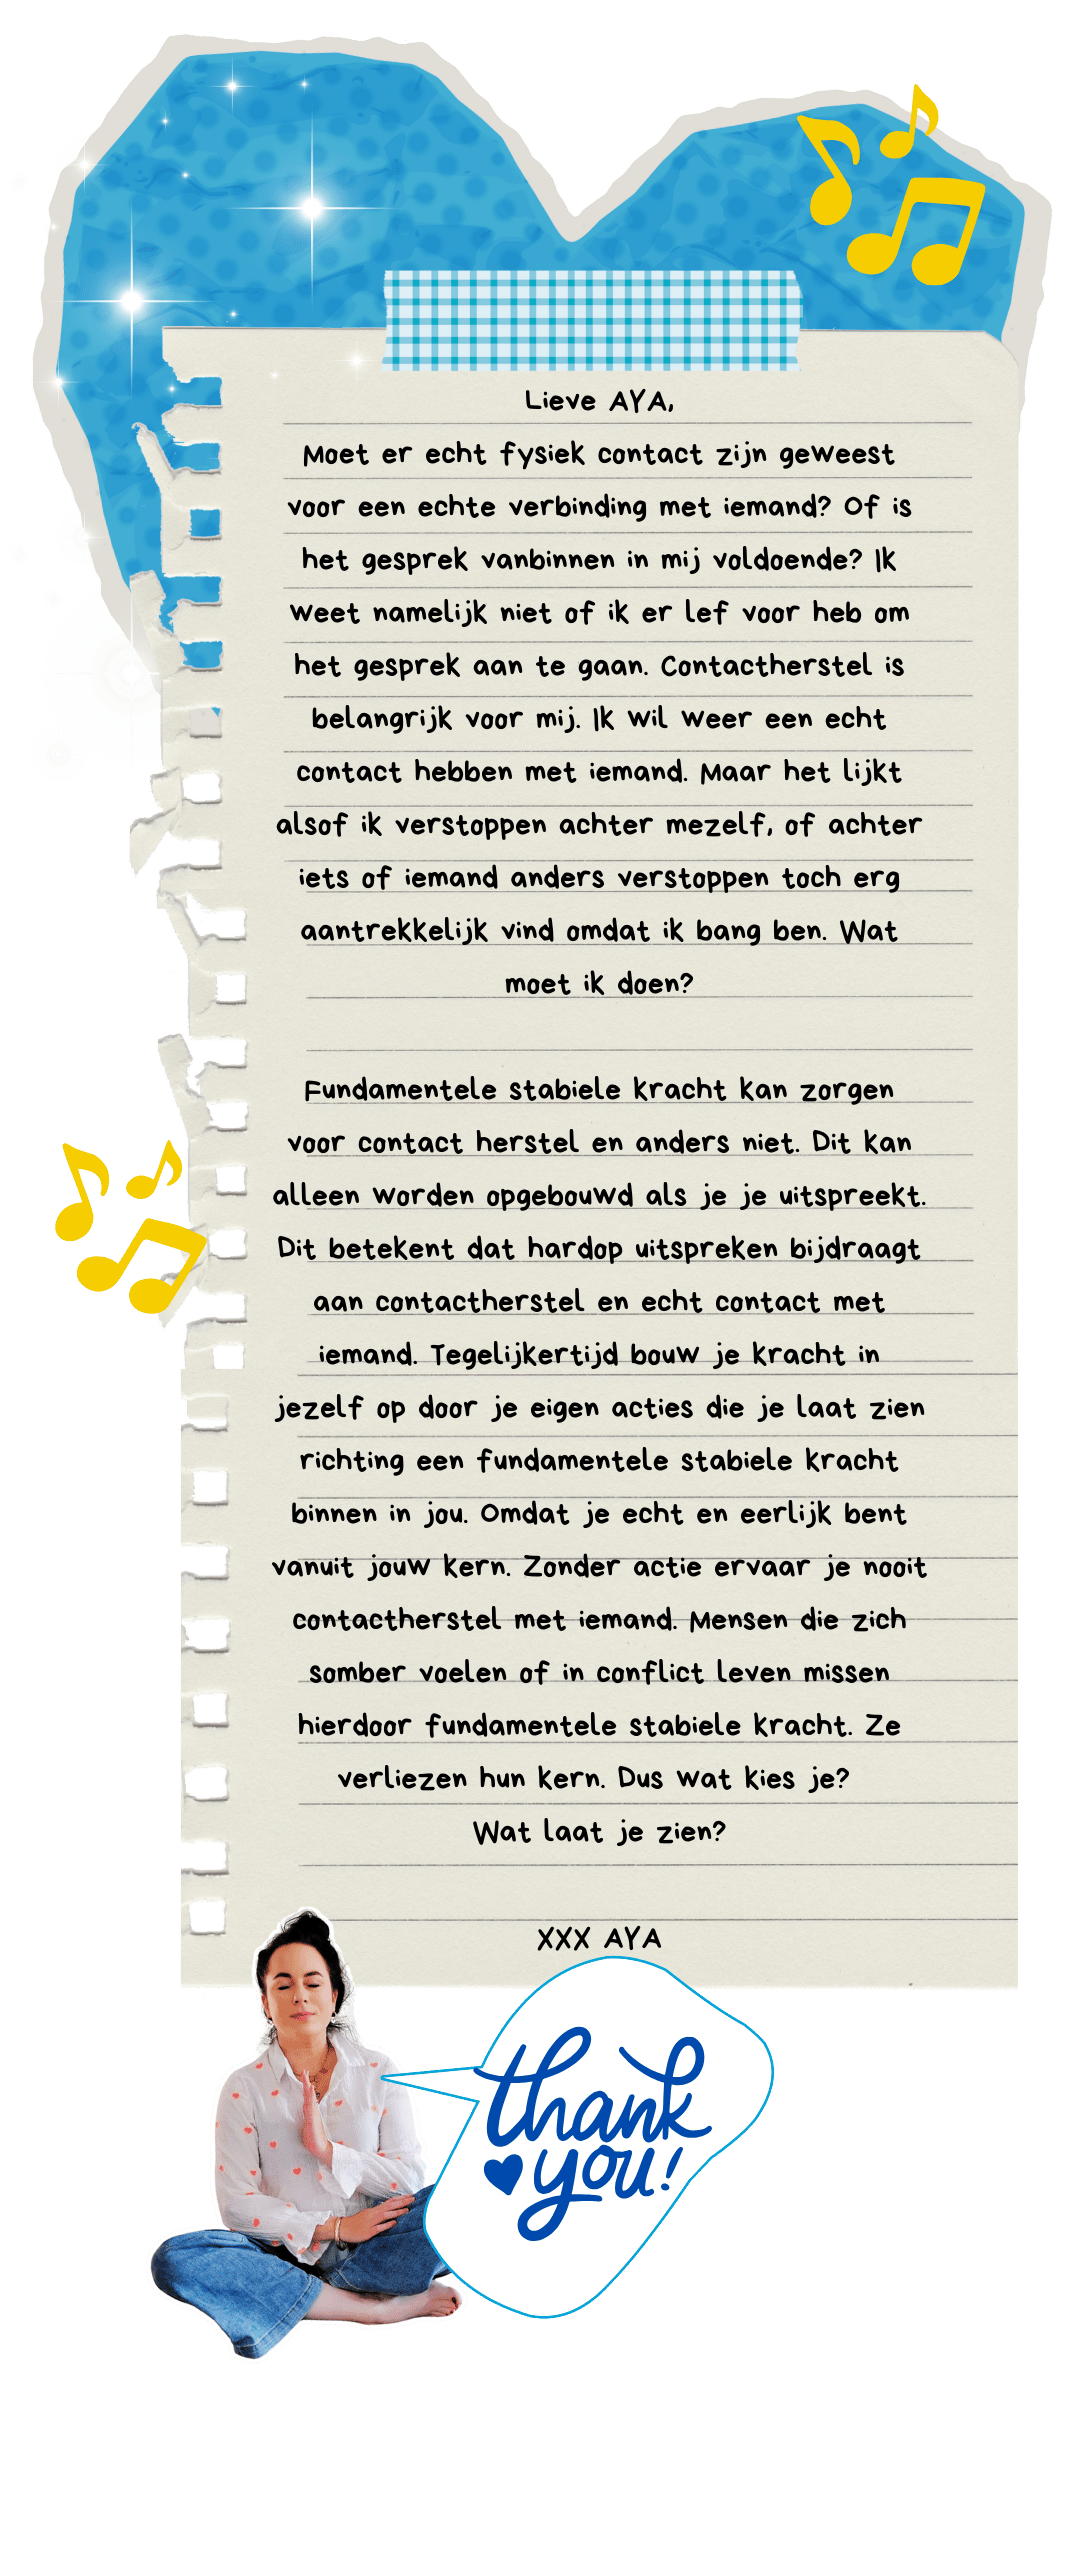 Lieve AYA,
Moet er echt fysiek contact zijn geweest
voor een echte verbinding met iemand? Of is
het gesprek vanbinnen in mij voldoende? Ik
weet namelijk niet of ik er lef voor heb om
het gesprek aan te gaan. Contactherstel is
belangrijk voor mij. Ik wil weer een echt
contact hebben met iemand. Maar het lijkt
alsof ik verstoppen achter mezelf, of achter
iets of iemand anders verstoppen toch erg
aantrekkelijk vind omdat ik bang ben. Wat
moet ik doen?
Fundamentele stabiele kracht kan zorgen
voor contact herstel en anders niet. Dit kan
alleen worden opgebouwd als je je uitspreekt.
Dit betekent dat hardop uitspreken bijdraagt
aan contactherstel en echt contact met
iemand. Tegelijkertijd bouw je kracht in
jezelf op door je eigen acties die je laat zien
richting een fundamentele stabiele kracht
binnen in jou. Omdat je echt en eerlijk bent
vanuit jouw kern. Zonder actie ervaar je nooit
contactherstel met iemand. Mensen die zich
somber voelen of in conflict leven missen
hierdoor fundamentele stabiele kracht. Ze
verliezen hun kern. Dus wat kies je?
Wat laat je zien?
XXX AYA
thank
you!